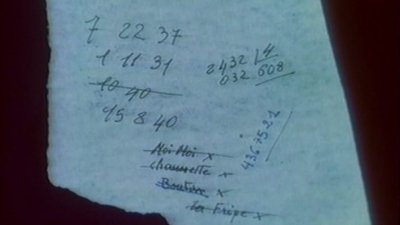 7 22 37
1 11 31
10 40
15 8 40
2432 4
032 608
4367521
Moi Moi x
chaussette x
Boutree x
La Fripe x